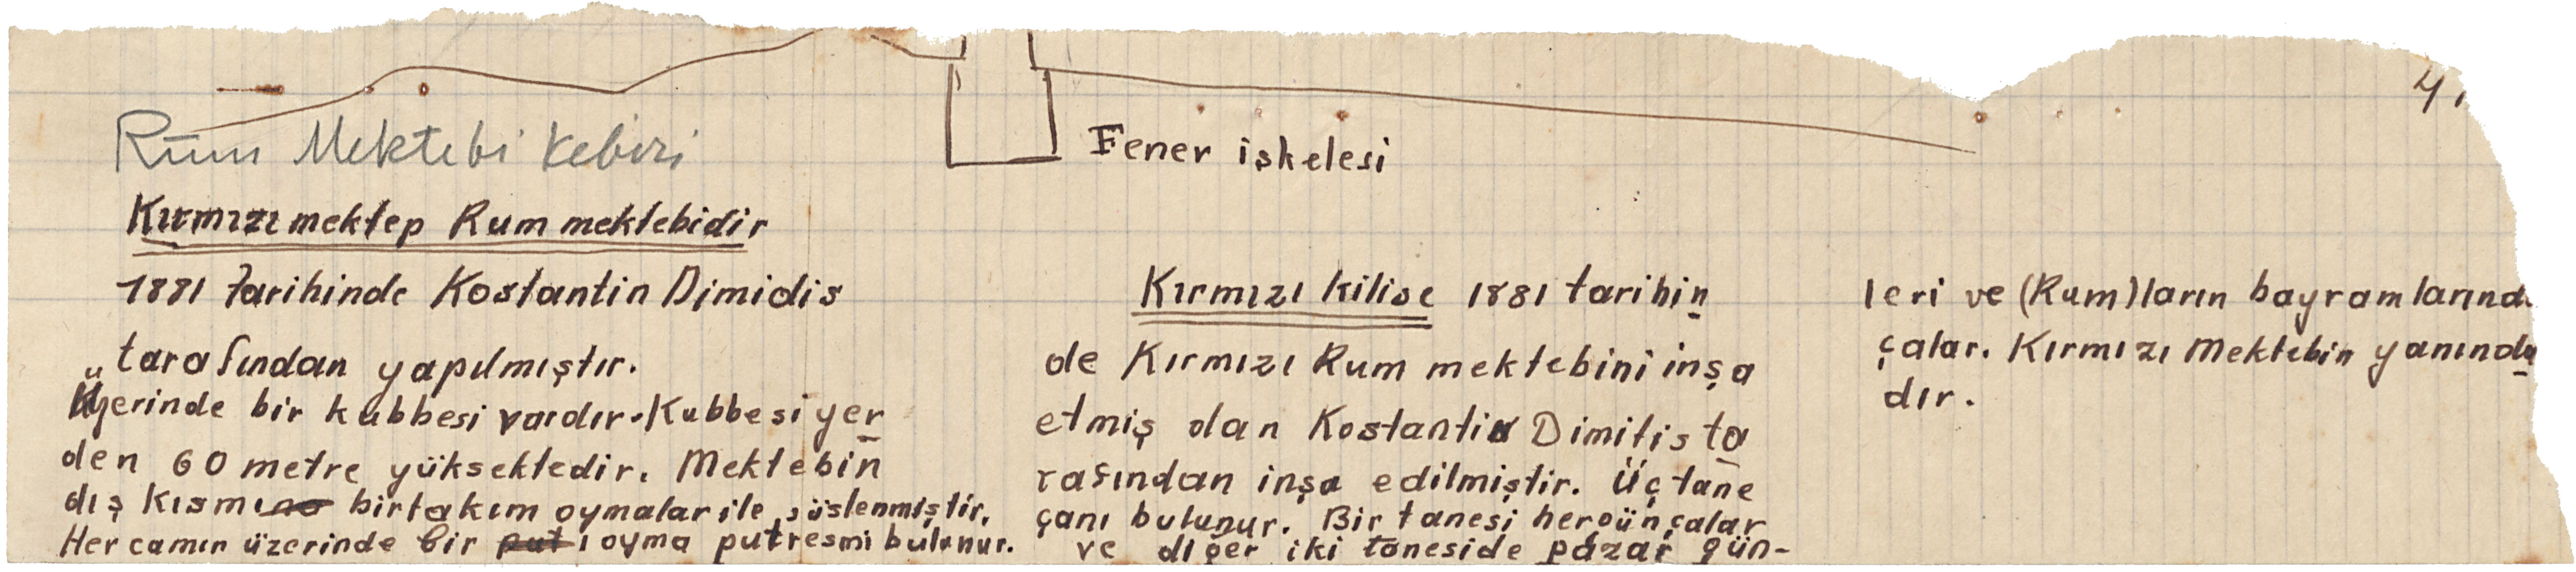 4
Rum Mektebi Kebiri
Fener iskelesi
Kırmızı mektep Rum mektebidir
1881 tarihinde Kostantin Dimidis
tarafından yapılmıştır.
Üzerinde bir kubbesi vardır. Kubbesi yer
den 60 metre yüksektedir. Mektebin
dış kısmı birtakım oymalar ile süslenmiştir.
Her camın üzerinde bir oyma put resmi bulunur.
Kırmızı kilise 1881 tarihin
de Kırmızı Rum mektebini inşa
etmiş olan Kostantin Dimitis ta
rafından inşa edilmiştir. Üç tane
çanı bulunur. Bir tanesi hergün çalar
ve diğer iki taneside pazar gün-
leri ve (Rum)ların bayramlarında
çalar. Kırmızı Mektebin yanında
dır.